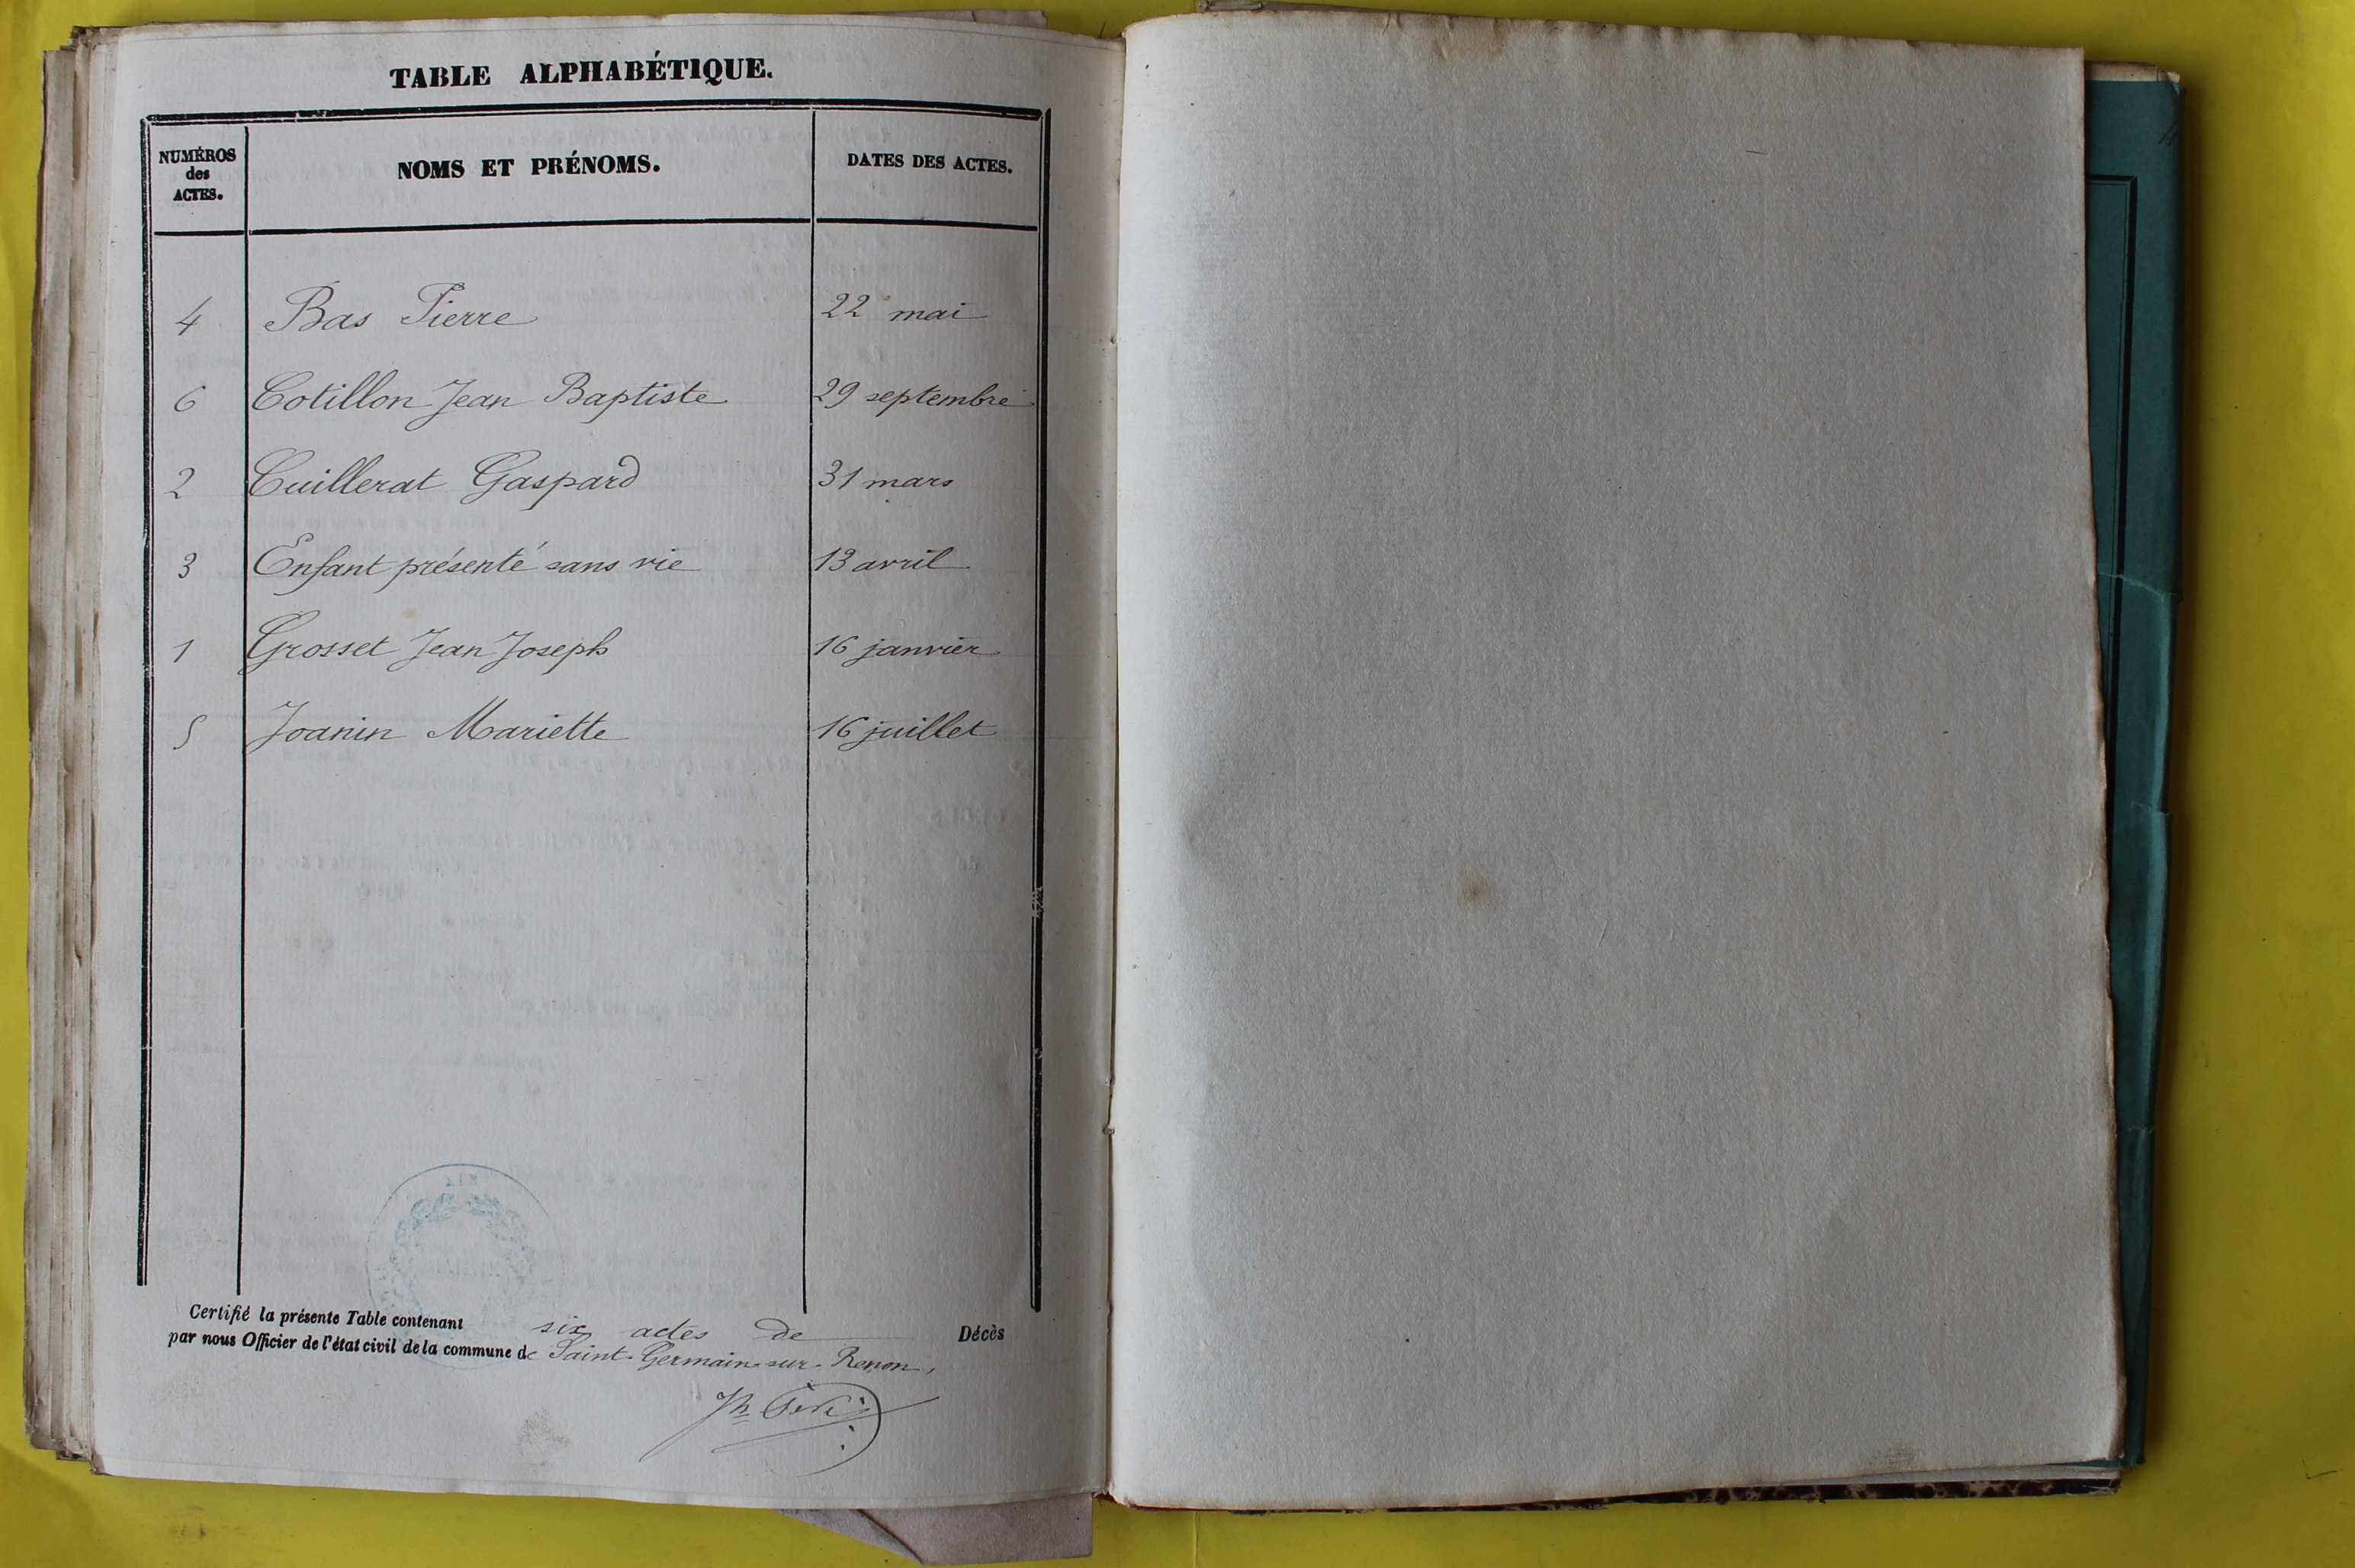 TABLE ALPHABÉTIQUE.
NUMÉROS
des
ACTES.
NOMS ET PRÉNOMS.
DATES DES ACTES.
4 Bas Pierre 22 mai
6 Cotillon Jean Baptiste 29 septembre
2 Cuillerat Gaspard 31 mars
3 Enfant présenté sans vie 13 avril
1 Grosset Jean Joseph 16 janvier
5 Joanin Mariette 16 juillet
Certifié la présente Table contenant six actes de Décès
par nous Officier de l'état civil de la commune de Saint-Germain-sur-Renon,